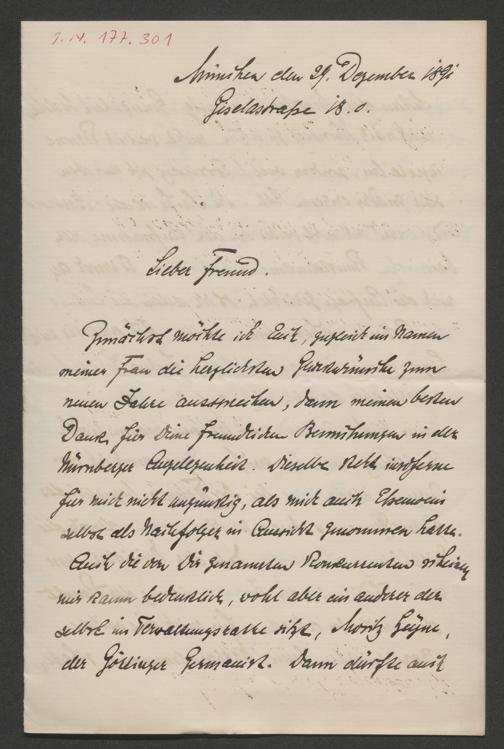 I.N. 177.301
München den 29. Dezember 1891
Giselastraße 18. o.
Lieber Freund.
Zunächst möchte ich Euch, zugleich im Namen
meiner Frau die herzlichsten Glückwünsche zum
neuen Jahre aussprechen, dann meinen besten
Dank für Deine freundlichen Bemühungen in der
Nürnberger Angelegenheit. Dieselbe steht insoferne
für mich nicht ungünstig, als mich auch Essenwein
selbst als Nachfolger in Aussicht genommen hatte.
Auch die von Dir genannten Konkurrenten scheinen
mir kaum bedenklich, wohl aber ein anderer der
selbst im Verwaltungsrathe sitzt, Moritz Heyne,
der Göttinger Germanist. Dann dürfte auch